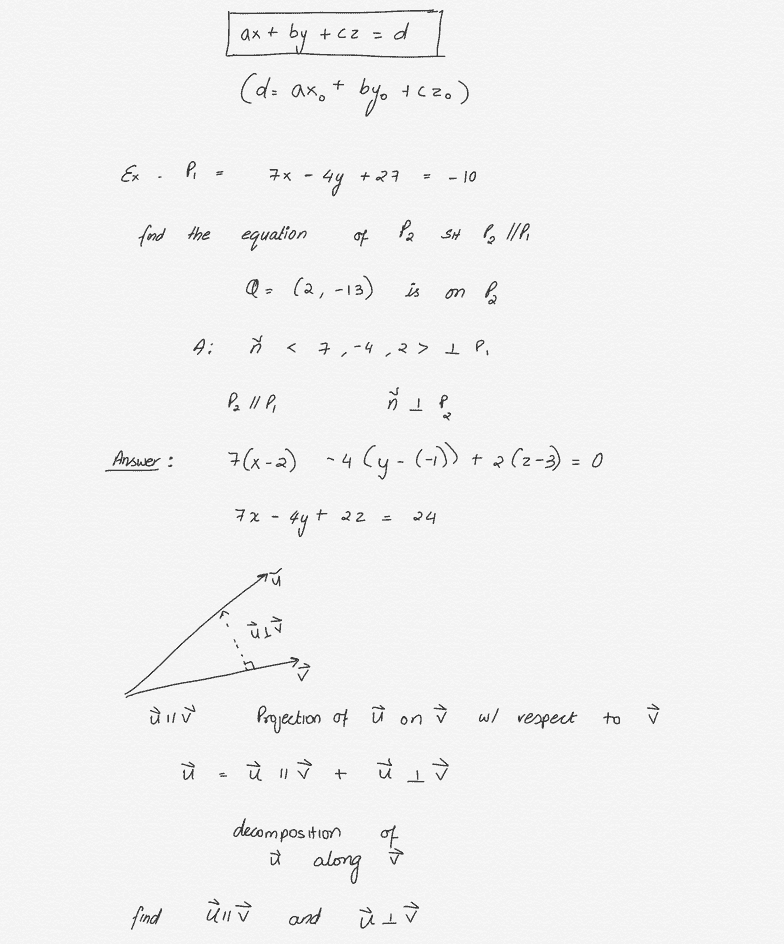 ax + by + cz = d
(d = ax₀ + by₀ + cz₀)
Ex . P₁ = 7x - 4y + 27 = -10
find the equation of P₂ st P₂ // P₁
Q = (2, -13) is on P₂
A: n⃗ < 7, -4, 2 > ⊥ P₁
P₂ // P₁ n⃗ ⊥ P₂
Answer : 7(x-2) -4(y-(-1)) + 2(z-3) = 0
7x - 4y + 2z = 24
u⃗
u⃗ ⊥ v⃗
v⃗
u⃗ // v⃗ Projection of u⃗ on v⃗ w/ respect to v⃗
u⃗ = u⃗ // v⃗ + u⃗ ⊥ v⃗
decomposition of
u⃗ along v⃗
find u⃗ // v⃗ and u⃗ ⊥ v⃗